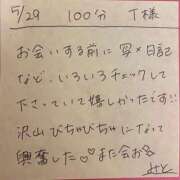 5/29 100分 T様
お会いする前に写メ日記
など、いろいろチェックして
下さっていて嬉しかったです!!
沢山びちゃびちゃになって
興奮した♡♡また会お